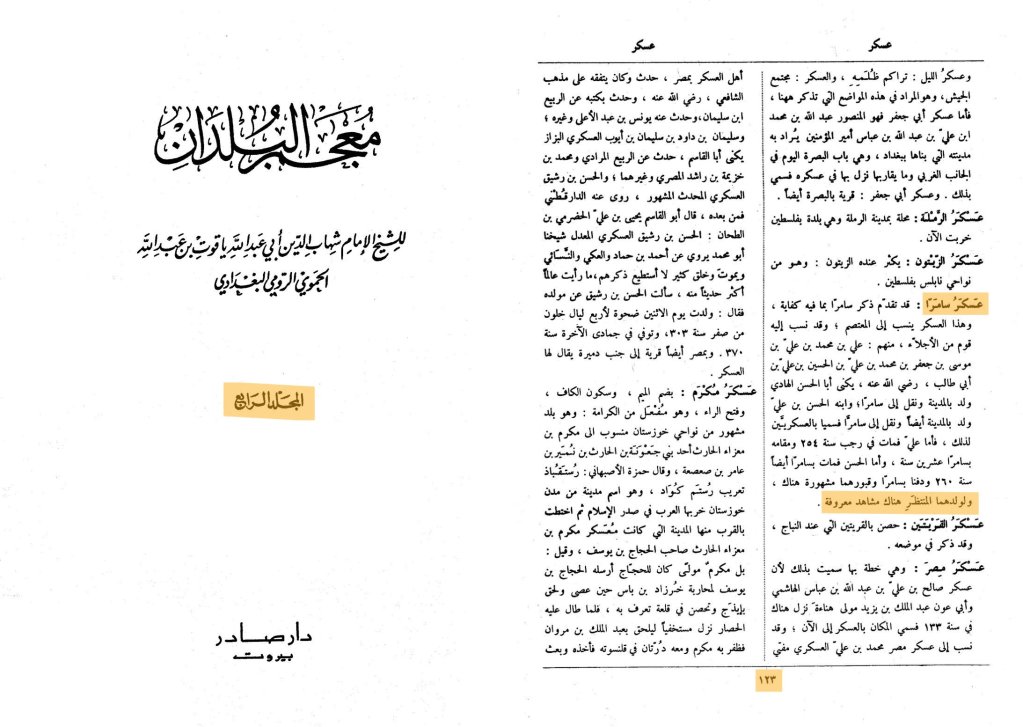 معجم البلدان
للشيخ الإمام شهاب الدين أبي عبد الله ياقوت بن عبد الله
الحموي الرومي البغدادي
المجلد الرابع
دار صادر
بيروت
عسكر
عسكر
وعسكرُ الليل : تراكم ظُلَمِهِ ، والعسكر : مجتمع
الجيش، وهو المراد في هذه المواضع التي تذكر ههنا ،
فأما عسكر أبي جعفر فهو المنصور عبد الله بن محمد
ابن عليّ بن عبد الله بن عباس أمير المؤمنين يُراد به
مدينته التي بناها ببغداد ، وهي باب البصرة اليوم في
الجانب الغربي وما يقاربها نزل بها في عسكره فسمي
بذلك . وعسكر أبي جعفر : قرية بالبصرة أيضاً .
عَسكَرُ الرَّمْلَة : محلة بمدينة الرملة وهي بلدة بفلسطين
خربت الآن .
عَسكَرُ الزَّيْتون : يكثر عنده الزيتون : وهو من
نواحي نابلس بفلسطين .
عَسكَرُ سامَرّا : قد تقدّم ذكر سامرا بما فيه كفاية ،
وهذا العسكر ينسب إلى المعتصم ؛ وقد نسب إليه
قوم من الأجلاّء ، منهم : علي بن محمد بن عليّ بن
موسى بن جعفر بن محمد بن عليّ بن الحسين بن عليّ بن
أبي طالب ، رضي الله عنه ، يكنى أبا الحسن الهادي
ولد بالمدينة ونقل إلى سامرا؛ وابنه الحسن بن عليّ
ولد بالمدينة أيضاً ونقل إلى سامرَّا فسميا بالعسكريَّين
لذلك ، فأما عليّ فمات في رجب سنة ٢٥٤ ومقامه
بسامرا عشرين سنة ، وأما الحسن فمات بسامرا أيضاً
سنة ٢٦٠ ودفنا بسامرا وقبورهما مشهورة هناك ،
ولولدهما المنتظَر هناك مشاهد معروفة .
عَسكَرُ القَرْيَتَين : حصن بالقريتين التي عند النباج ،
وقد ذكر في موضعه .
عَسكَرُ مِصرَ : وهي خطة بها سميت بذلك لأن
عسكر صالح بن عليّ بن عبد الله بن عباس الهاشمي
وأبي عون عبد الملك بن يزيد مولى هناءة نزل هناك
في سنة ١٣٣ فسمي المكان بالعسكر إلى الآن ؛ وقد
نسب إلى عسكر مصر محمد بن عليّ العسكري مفتي
أهل العسكر بمصر ، حدث وكان يتفقه على مذهب
الشافعي ، رضي الله عنه ، وحدث بكتبه عن الربيع
ابن سليمان، وحدث عنه يونس بن عبد الأعلى وغيره ؛
وسليمان بن داود بن سليمان بن أيوب العسكري البزاز
يكنى أبا القاسم ، حدث عن الربيع المرادي ومحمد بن
خزيمة بن راشد المصري وغيرهما ؛ والحسن بن رشيق
العسكري المحدث المشهور ، روى عنه الدارقُطْني
فمن بعده ، قال أبو القاسم يحيى بن عليّ الحضرمي بن
الطحان : الحسن بن رشيق العسكري المعدل شيخنا
أبو محمد يروي عن أحمد بن حماد والعكي والنَّسائي
ويموت وخلق كثير لا أستطيع ذكرهم، ما رأيت عالماً
أكثر حديثاً منه ، سألت الحسن بن رشيق عن مولده
فقال : ولدت يوم الاثنين ضحوة لأربع ليال خلون
من صفر سنة ٣٠٣، وتوفي في جمادى الآخرة سنة
٣٧٠ . وبمصر أيضاً قرية إلى جنب دميرة يقال لها
العسكر .
عَسكَرُ مُكْرَم : بضم الميم ، وسكون الكاف ،
وفتح الراء ، وهو مُفْعَل من الكرامة : وهو بلد
مشهور من نواحي خوزستان منسوب الى مكرم بن
معزاء الحارث أحد بني جَعْوَنة بن الحارث بن نُمَير بن
عامر بن صعصعة ، وقال حمزة الأصبهاني : رُستَقُباذ
تعريب رُستَم كُوَاد ، وهو اسم مدينة من مدن
خوزستان خربها العرب في صدر الإسلام ثم اختطت
بالقرب منها المدينة التي كانت مُعَسكر مكرم بن
معزاء الحارث صاحب الحجاج بن يوسف ، وقيل :
بل مكرمٌ مولىً كان للحجّاج أرسله الحجاج بن
يوسف لمحاربة خُرزاد بن باس حين عصى ولحق
بإيذَج وتحصن في قلعة تعرف به ، فلما طال عليه
الحصار نزل مستخفياً ليلحق بعبد الملك بن مروان
فظفر به مكرم ومعه دُرّتان في قلنسوته فأخذه وبعث
١٢٣